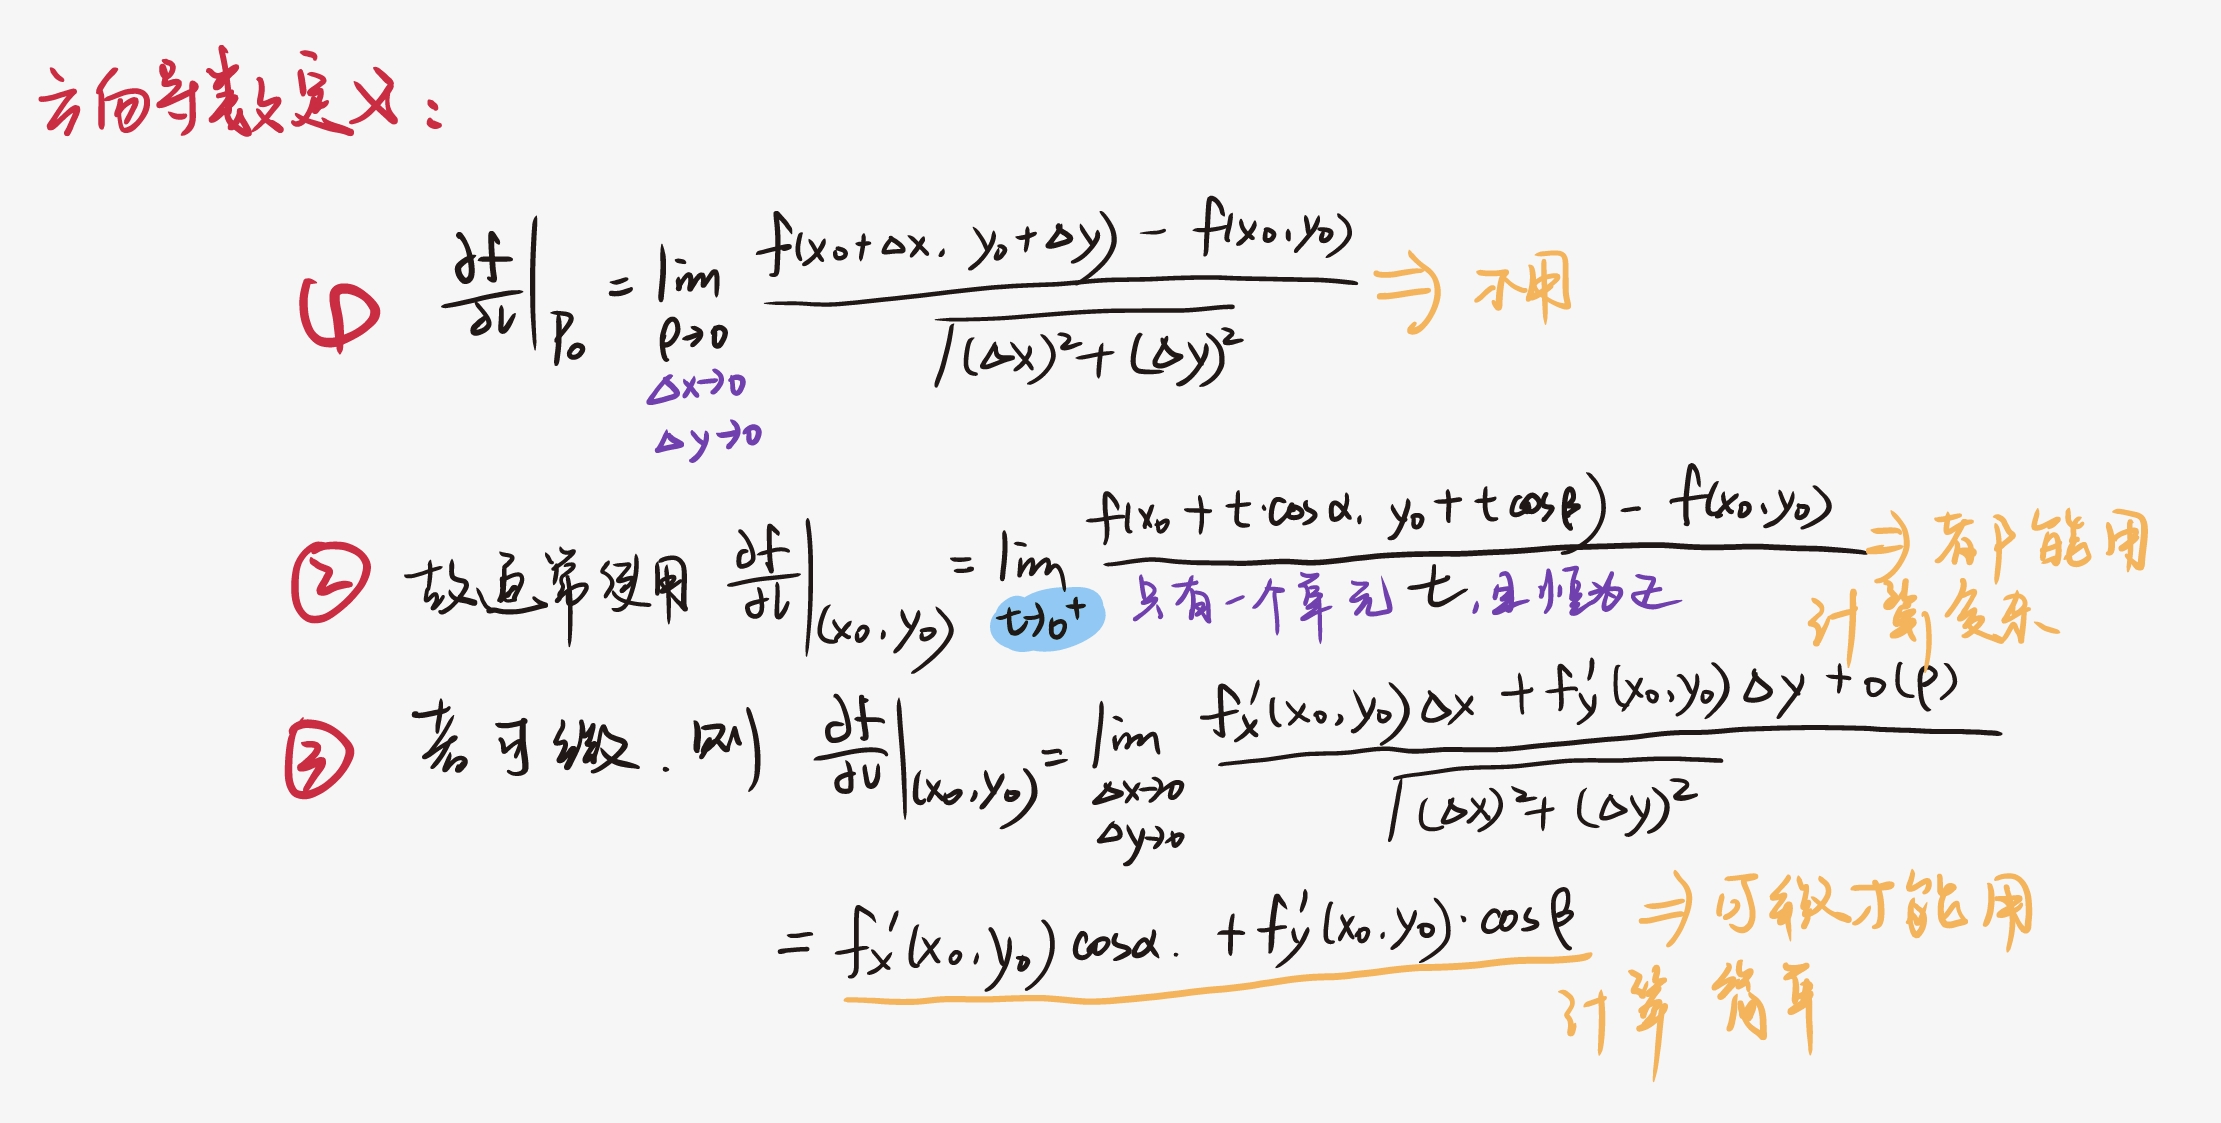 方向导数定义:
① ∂f/∂l|P₀ = lim ρ→0 Δx→0 Δy→0 f(x₀+Δx, y₀+Δy) - f(x₀,y₀) / √(Δx)²+(Δy)² ⇒ 不用
② 故通常使用 ∂f/∂l|(x₀,y₀) = lim t→0⁺ f(x₀+t·cosα, y₀+tcosβ) - f(x₀,y₀) / t ⇒ 都能用
只有一个单元t,且恒为正
计算复杂
③ 若可微,则 ∂f/∂l|(x₀,y₀) = lim Δx→0 Δy→0 fx′(x₀,y₀)Δx + fy′(x₀,y₀)Δy + o(ρ) / √(Δx)²+(Δy)²
= fx′(x₀,y₀)cosα. + fy′(x₀,y₀)·cosβ ⇒ 可微才能用
计算简单